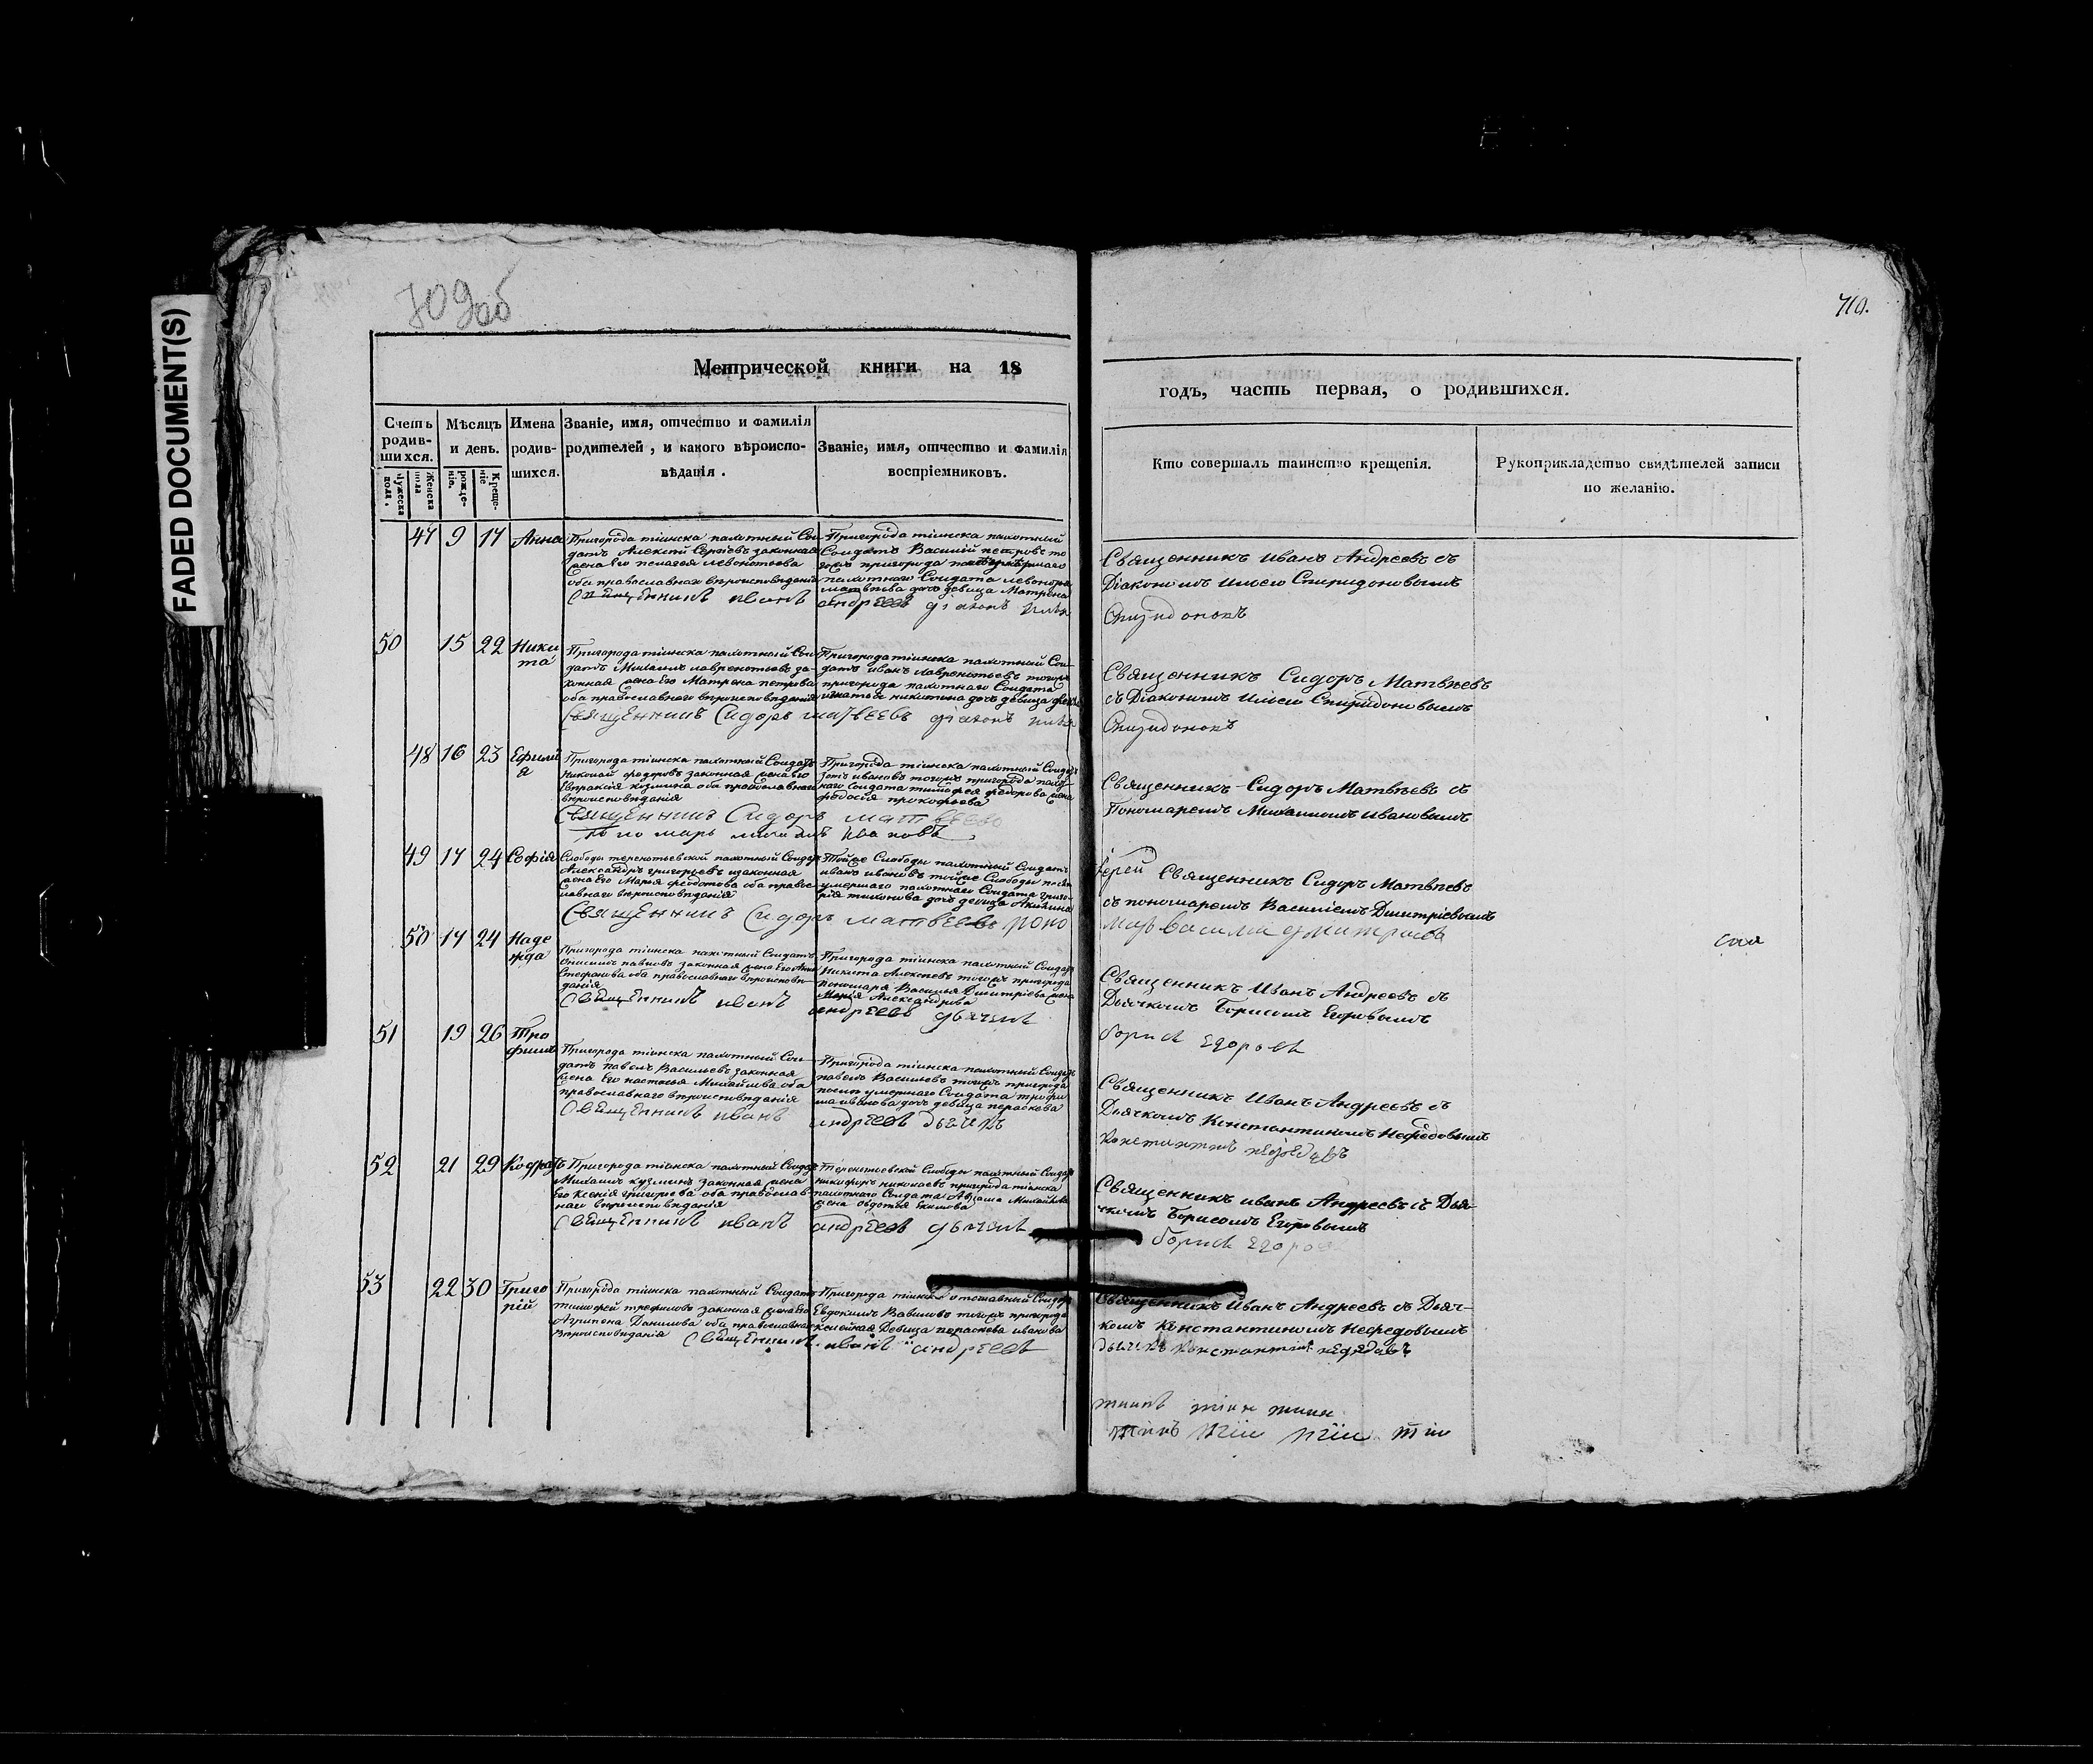 FADED DOCUMENT(S)
709об
710.
Метрической книги на 18
годъ, часть первая, о родившихся.
Счетъ родив-шихся.
Мужеска пола.
Женска пола
Мѣсяцъ и день.
рожде-нія.
Креще-ніе
Имена родив-шихся.
Званіе, имя, отчество и фамилія
родителей, и какого вѣроиспо-
вѣданія.
Званіе, имя, отчество и фамилія
воспріемниковъ.
Кто совершалъ таинство крещенія.
Рукоприкладство свидѣтелей записи
по желанію.
47 9 17 Анна
Пригорода тіинска пахотный Сол-
датъ Алексѣй Сергѣевъ законная
жена Его пелагея левонтьева
оба православнаго вѣроисповѣданія
Священникъ иванъ андреевъ діаконъ илья
Пригорода тіинска пахотный
Солдатъ Василій петровъ то
гожъ пригорода
пахотнаго Солдата
матвѣева дочь девица Матрена
Священникъ Иванъ Андреевъ съ
Діакономъ Ильею Спиридоновымъ
Спиридоновъ
50 15 22 Ники
та
Пригорода тіинска пахотный Сол
датъ Михаилъ лаврентьевъ за-
конная жена Его Матрена петрова
оба православнаго вѣроисповѣданія
Священникъ Сидоръ матвеевъ діаконъ илья
Пригорода тіинска пахотный Сол
датъ иванъ лаврентьевъ тогожъ
пригорода пахотнаго Солдата
игнатья никитина дочь девица
Священникъ Сидоръ Матвѣевъ
съ Діакономъ Ильею Спиридоновымъ
Спиридоновъ
48 16 23 Ефимі
я
Пригорода тіинска пахотный Солдатъ
Николай федоровъ законная жена Его
Евпраксія козмина оба православнаго
вѣроисповѣданія
Священникъ Сидоръ матвеевъ
Пономарь михаилъ ивановъ
Пригорода тіинска пахотный Солда
ивановъ тогожъ пригорода пахот
наго Солдата тимофея федорова жена
федосія прокофьева
Священникъ Сидоръ Матвѣевъ съ
Пономаремъ Михаиломъ ивановымъ
49 17 24 Софія
Слободы терентьевской пахотный Солдатъ
Александръ григорьевъ законная
жена Его Марья федотова оба правос-
лавнаго вѣроисповѣданія
Священникъ Сидоръ матвеевъ поно
Тойже Слободы пахотный Солдатъ
иванъ ивановъ тойже Слободы послѣ
умершаго пахотнаго Солдата григо-
рія тихонова дочь девица Акилина
Іерей Священникъ Сидоръ Матвѣевъ
съ пономаремъ Василіемъ Дмитріевымъ
марь василей дмитриевъ
50 17 24 Наде
жда
Пригорода тіинска пахотный Солдатъ
Онисимъ павловъ законная жена Его Анна
Стефанова оба православнаго вѣроисповѣ-
данія
Священникъ иванъ андреевъ дьячекъ
Пригорода тіинска пахотный Солда
Никита Алексеевъ тогожъ пригорода
пономаря Василья Дмитріева жена
Марія Александрова
Священникъ Иванъ Андреевъ съ
Дьячкомъ Борисомъ Егоровымъ
борисъ егоровъ
51 19 26 Тро
фимъ
Пригорода тіинска пахотный Сол-
датъ павелъ Васильевъ законная
жена Его настасья Михайлова оба
православнаго вѣроисповѣданія
Священникъ иванъ андреевъ дьячекъ
Пригорода тіинска пахотный Солда
павелъ Васильевъ тогожъ пригорода
послѣ умершаго Солдата трофи
ма иванова дочь девица параскева
Священникъ Иванъ Андреевъ съ
Дьячкомъ Константиномъ Нефедовымъ
константинъ нефедовъ
52 21 29 Кодратъ
Пригорода тіинска пахотный Солда
Михаилъ кузминъ законная жена
Его Ксенія григорьева оба православ-
наго вѣроисповѣданія
Священникъ иванъ андреевъ дьячекъ
Терентьевской Слободы пахотный Солда
никифоръ николаевъ пригорода тіинска
пахотнаго Солдата Михайлова
жена овдотья Екимова
Священникъ иванъ Андреевъ съ Дья-
чкомъ Борисомъ Егоровымъ
борисъ егоровъ
53 22 30 Григо
рій
Пригорода тіинска пахотный Солдатъ
тимофей трофимовъ законная жена Его
Агрипена Данилова оба православнаго
вѣроисповѣданія Священникъ иванъ андреевъ
Пригорода тіинска отставный Солда
Евдокимъ Вавиловъ тогожъ пригорода
келейная Девица параскева иванова
Священникъ Иванъ Андреевъ съ Дьяч-
комъ Константиномъ Нефедовымъ
дьячекъ константинъ нефедовъ